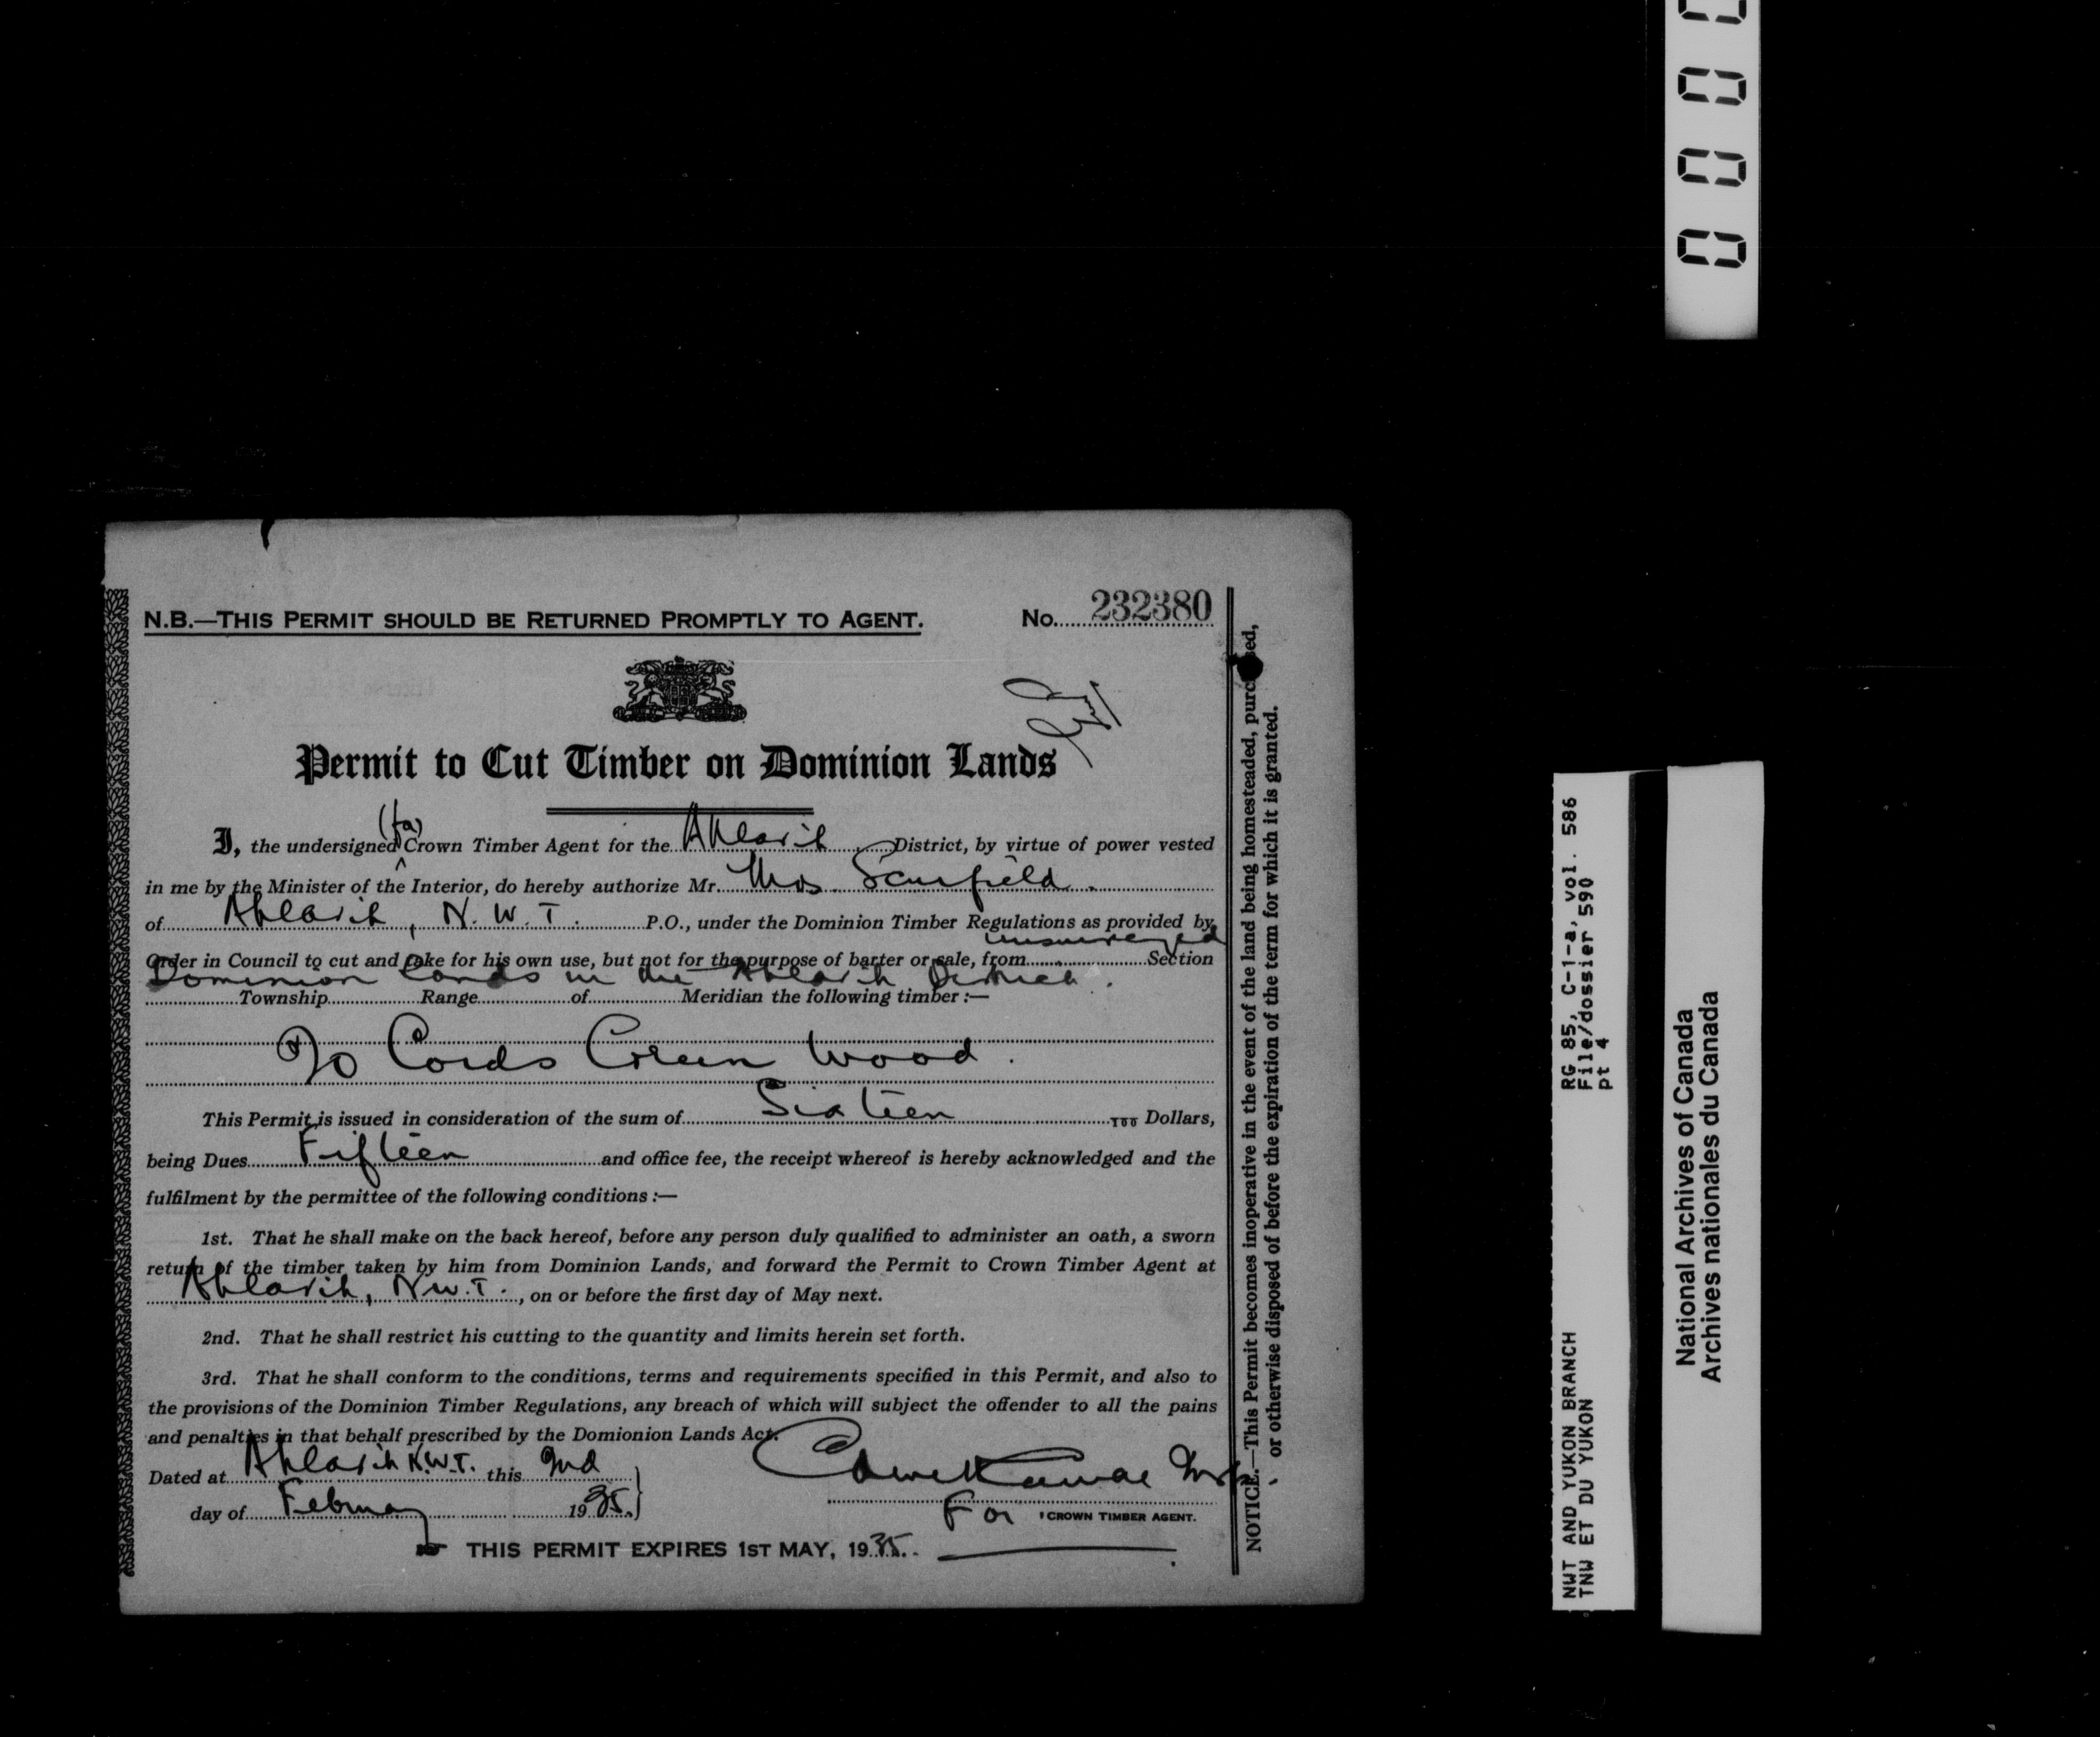 N.B.—THIS PERMIT SHOULD BE RETURNED PROMPTLY TO AGENT.
No. 232380
Permit to Cut Timber on Dominion Lands
(for)
I, the undersigned Crown Timber Agent for the Aklavik District, by virtue of power vested
in me by the Minister of the Interior, do hereby authorize Mr. Thos. Scurfield.
of Aklavik, N.W.T. P.O., under the Dominion Timber Regulations as provided by
unsurveyed
Order in Council to cut and take for his own use, but not for the purpose of barter or sale, from Section
Dominion Lands in the Aklavik District.
Township Range of Meridian the following timber:—
Cords Green Wood.
This Permit is issued in consideration of the sum of Sixteen 100 Dollars,
being Dues Fifteen and office fee, the receipt whereof is hereby acknowledged and the
fulfilment by the permittee of the following conditions:—
1st. That he shall make on the back hereof, before any person duly qualified to administer an oath, a sworn
return of the timber taken by him from Dominion Lands, and forward the Permit to Crown Timber Agent at
Aklavik, N.W.T., on or before the first day of May next.
2nd. That he shall restrict his cutting to the quantity and limits herein set forth.
3rd. That he shall conform to the conditions, terms and requirements specified in this Permit, and also to
the provisions of the Dominion Timber Regulations, any breach of which will subject the offender to all the pains
and penalties in that behalf prescribed by the Domionion Lands Act.
Dated at Aklavik N.W.T. this 2nd
day of February 1935.
For CROWN TIMBER AGENT.
THIS PERMIT EXPIRES 1ST MAY, 1935.
NOTICE.—This Permit becomes inoperative in the event of the land being homesteaded, purc sed,
or otherwise disposed of before the expiration of the term for which it is granted.
RG 85, C-1-a, vol. 586
File/dossier 590
pt 4
NWT AND YUKON BRANCH
TNW ET DU YUKON
National Archives of Canada
Archives nationales du Canada